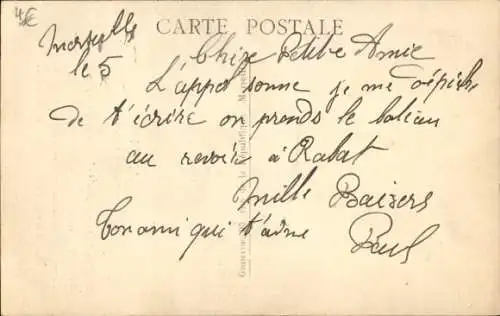 4€
CARTE POSTALE
Marseille
le 5
Chère Petite Amie
L'appel sonne je me dépêche
de t'écrire on prends le bateau
au revoir à Rabat
Mille Baizers
Ton ami qui t'adore
Paul